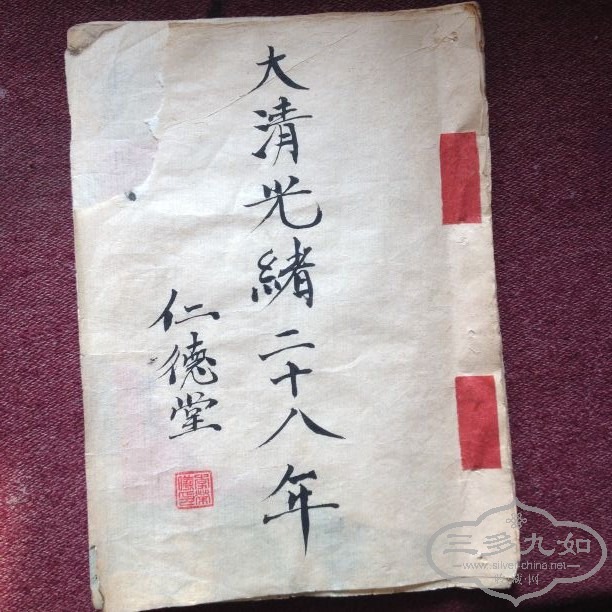 大清光緒二十八年
仁德堂
三多九如
www.silver-china.net
收藏网